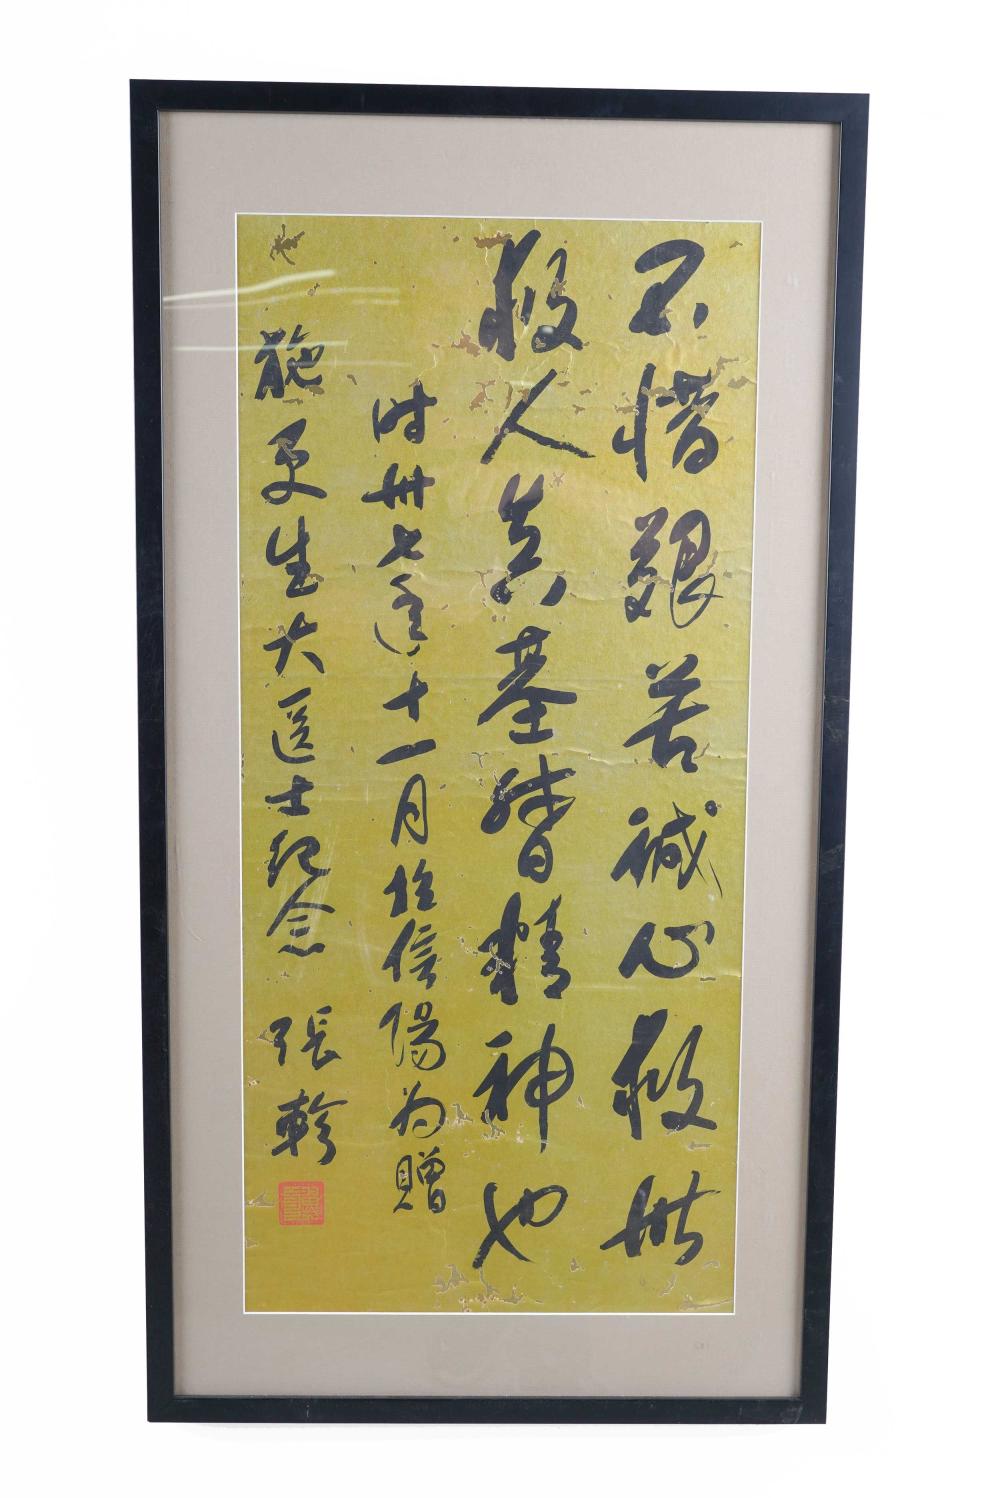 不惜艱苦誠心救世
救人真基督精神也
時卅七年十一月於信陽為贈
施更生大医士紀念 張軫